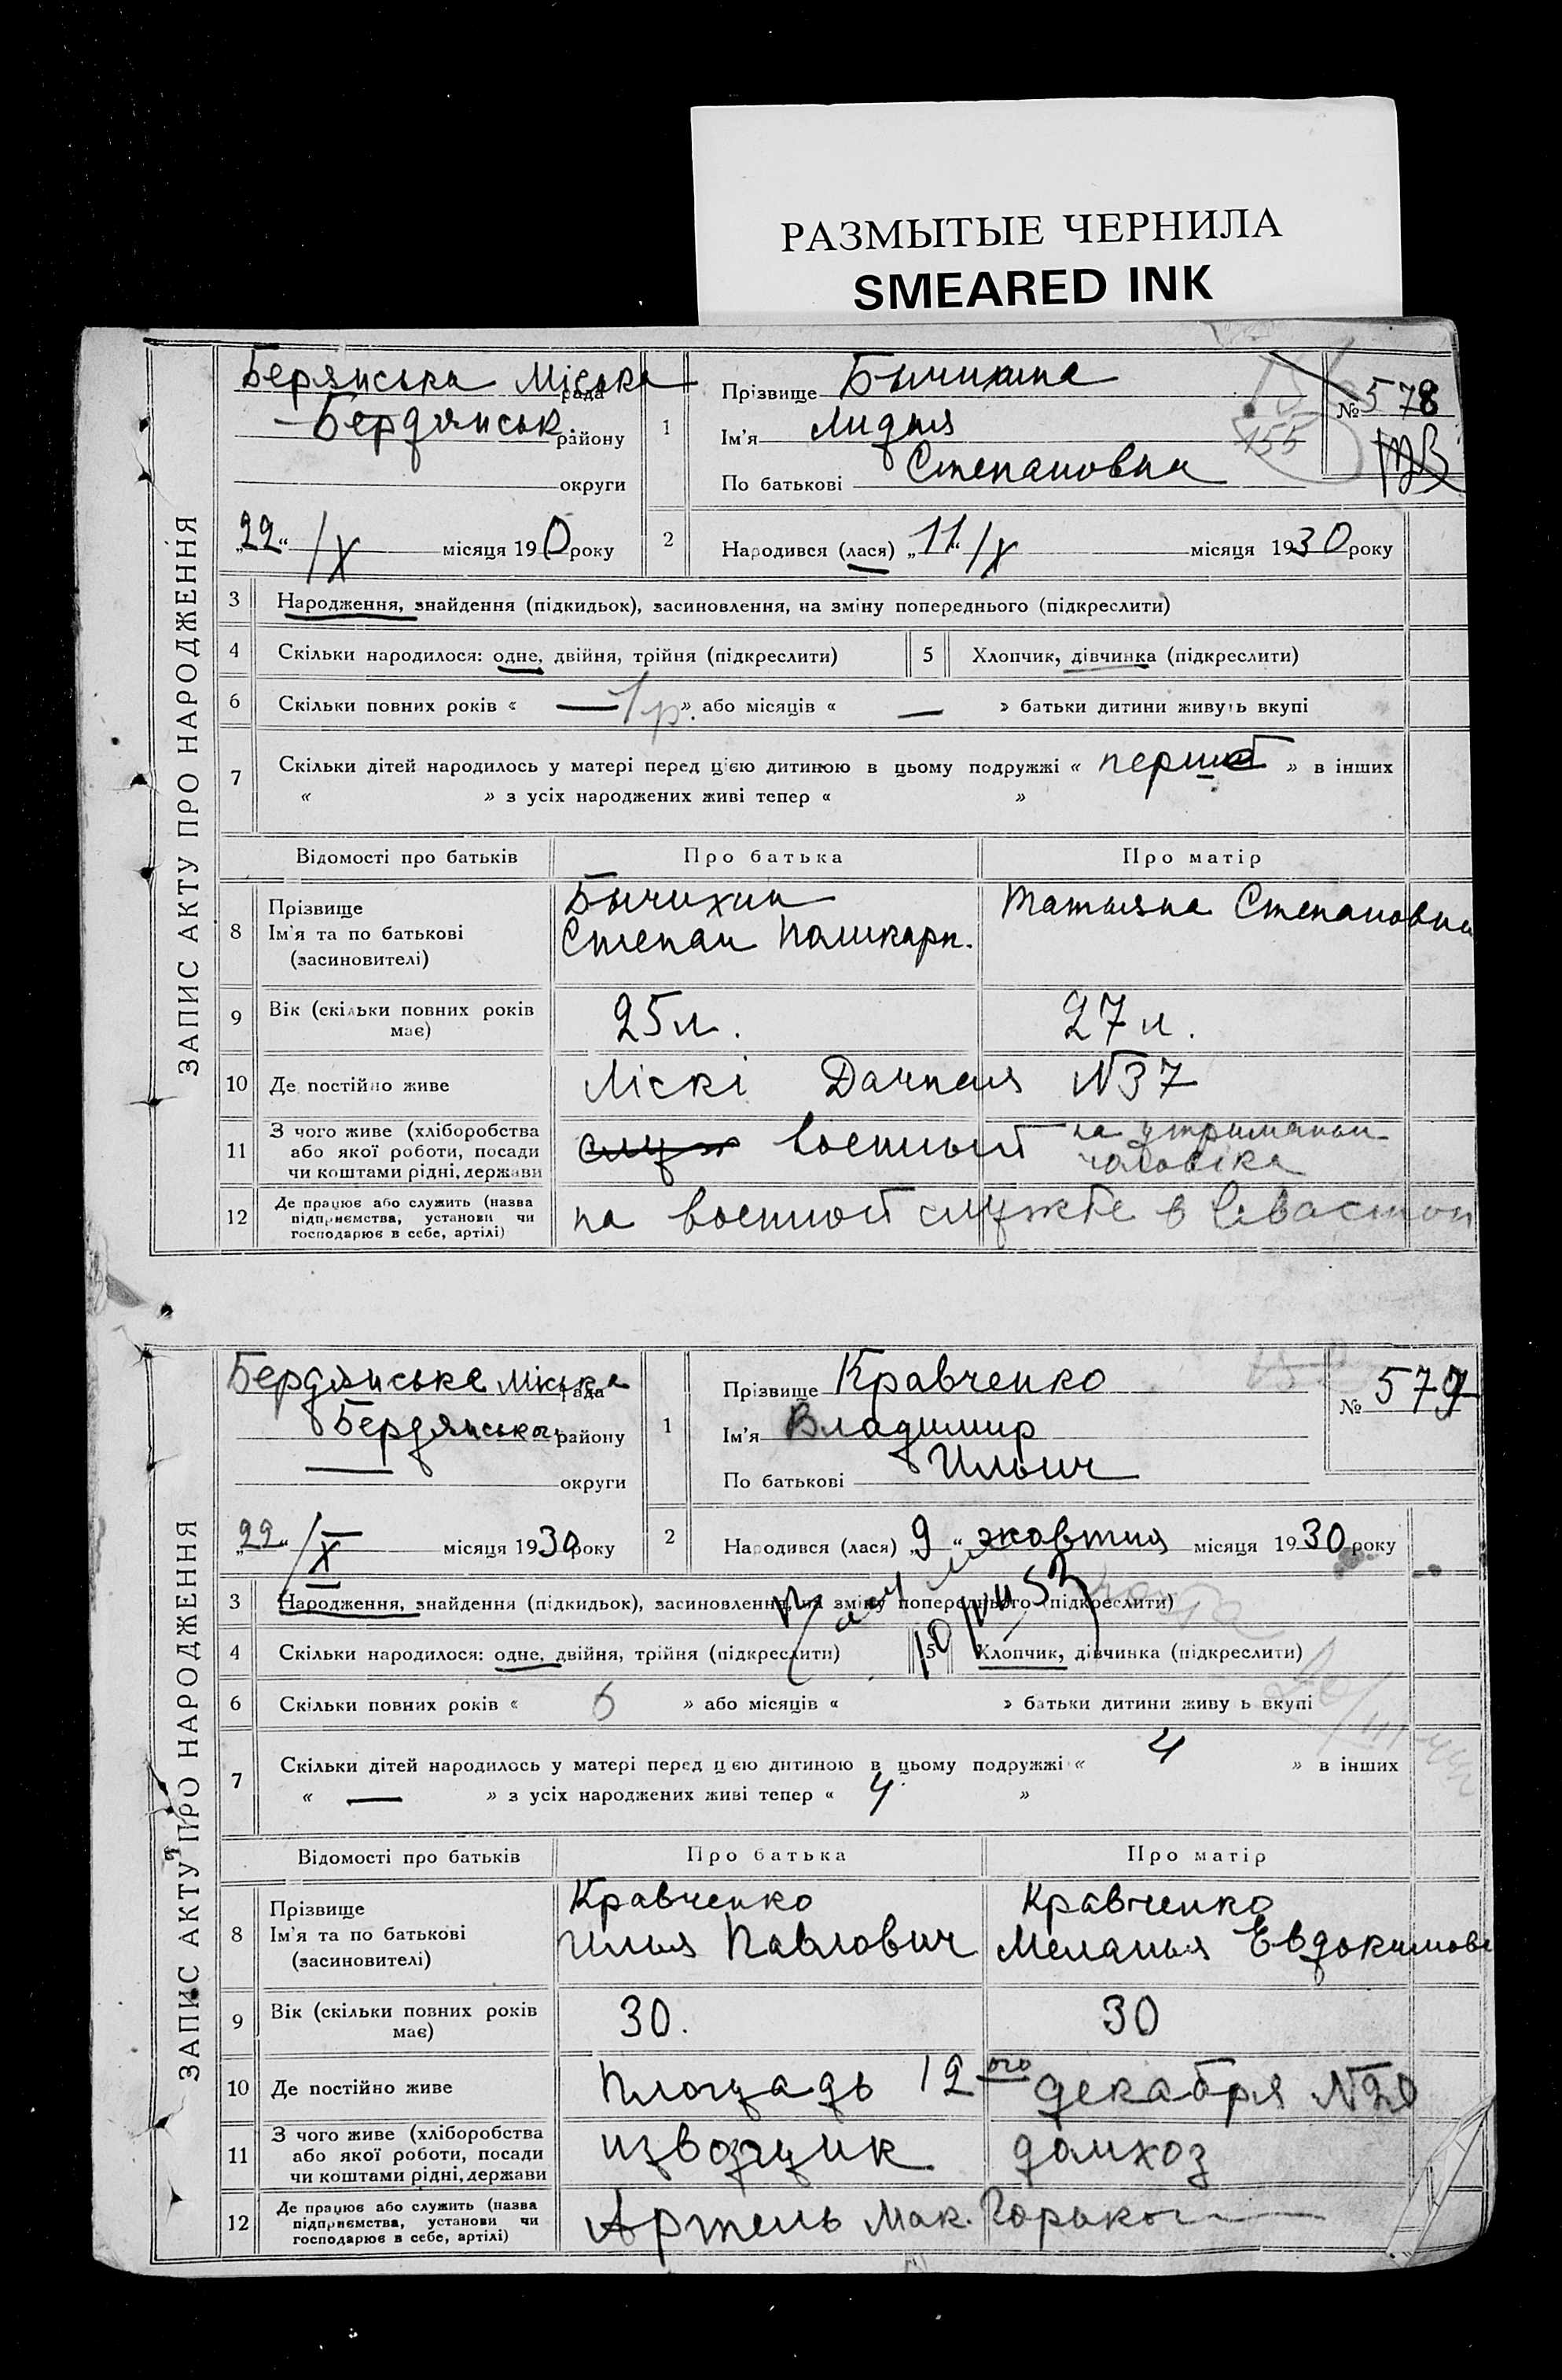 РАЗМЫТЫЕ ЧЕРНИЛА
SMEARED INK
ЗАПИС АКТУ ПРО НАРОДЖЕННЯ
Берянська Міська рада
Бердянськ. району
округи
„22“ /X місяця 190 року
1
Прізвище Бычихина
Ім'я Лидия
По батькові Степановна
155
№ 578
2
Народився (лася) „11“ /X місяця 1930 року
3 Народження, знайдення (підкидьок), засиновлення, на зміну попереднього (підкреслити)
4 Скільки народилося: одне, двійня, трійня (підкреслити) 5 Хлопчик, дівчинка (підкреслити)
6 Скільки повних років « — 1 р. » або місяців « — » батьки дитини живуть вкупі
7 Скільки дітей народилось у матері перед цією дитиною в цьому подружжі « » в інших
« » з усіх народжених живі тепер « »
Відомості про батьків Про батька Про матір
8 Прізвище
Ім'я та по батькові
(засновителі)
Бычихин
Степан
Татьяна Степановна
9 Вік (скільки повних років
має)
25 л. 27 л.
10 Де постійно живе Ліскі Дачная №37
11 З чого живе (хліборобства
або якої роботи, посади
чи коштами рідні, держави
служ военный на утриманьи
чоловіка
12 Де працює або служить (назва
підприємства, установи чи
господарює в себе, артілі)
на военной службе в Севастоп
ЗАПИС АКТУ ПРО НАРОДЖЕННЯ
Бердянська міська рада
Бердянськог району
округи
„22“ /X місяця 1930 року
1
Прізвище Кравченко
Ім'я Владимир
По батькові Ильич
№ 579
2
Народився (лася) „9“ жовтня місяця 1930 року
3 Народження, знайдення (підкидьок), засиновлення, на зміну попереднього (підкреслити)
4 Скільки народилося: одне, двійня, трійня (підкреслити) 5 Хлопчик, дівчинка (підкреслити)
6 Скільки повних років « 6 » або місяців « » батьки дитини живуь вкупі
7 Скільки дітей народилось у матері перед цією дитиною в цьому подружжі « 4 » в інших
« — » з усіх народжених живі тепер « 4 »
Відомості про батьків Про батька Про матір
8 Прізвище
Ім'я та по батькові
(засиновителі)
Кравченко
Илья Павлович
Кравченко
Меланья Евдокимовн
9 Вік (скільки повних років
має)
30. 30
10 Де постійно живе Площадь 12ого декабря №20
11 З чого живе (хліборобства
або якої роботи, посади
чи коштами рідні, держави
извозчик домхоз
12 Де працює або служить (назва
підприємства, установи чи
господарює в себе, артілі)
Артель Мак. Горьког